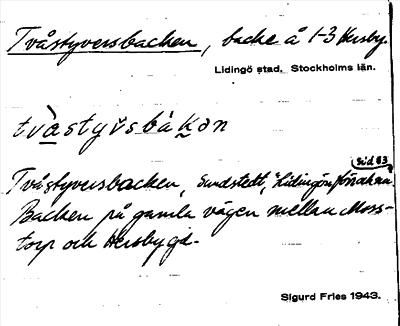 Tvåstyversbacken, backe å 1-3 Hersby.
Lidingö stad. Stockholms län.
tvåstyvsbàkən
sid 63
Tvåstyversbacken, Sundstedt, "Lidingön förr och nu".
Backen på gamla vägen mellan Moss-
torp och Hersby gd.
Sigurd Fries 1943.